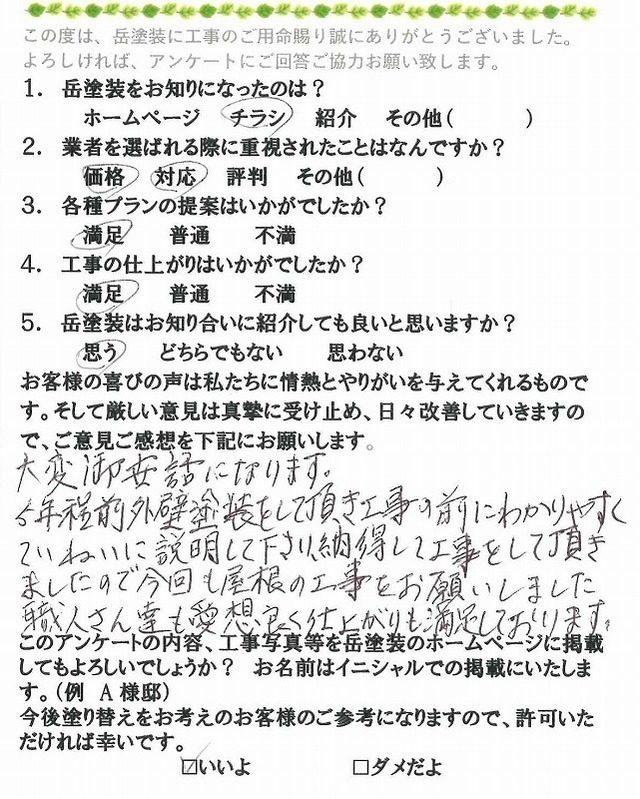 この度は、岳塗装に工事のご用命賜り誠にありがとうございました。
よろしければ、アンケートにご回答ご協力お願い致します。
1. 岳塗装をお知りになったのは？
ホームページ チラシ 紹介 その他( )
2. 業者を選ばれる際に重視されたことはなんですか？
価格 対応 評判 その他( )
3. 各種プランの提案はいかがでしたか？
満足 普通 不満
4. 工事の仕上がりはいかがでしたか？
満足 普通 不満
5. 岳塗装はお知り合いに紹介しても良いと思いますか？
思う どちらでもない 思わない
お客様の喜びの声は私たちに情熱とやりがいを与えてくれるもので
す。そして厳しい意見は真摯に受け止め、日々改善していきますの
で、ご意見ご感想を下記にお願いします。
大変御世話になります。
5年程前外壁塗装をして頂き工事の前にわかりやすく
ていねいに説明して下さり、納得して工事をして頂き
ましたので今回も屋根の工事をお願いしました
職人さん達も愛想良く仕上がりも満足しております。
このアンケートの内容、工事写真等を岳塗装のホームページに掲載
してもよろしいでしょうか？ お名前はイニシャルでの掲載にいたしま
す。（例 A 様邸）
今後塗り替えをお考えのお客様のご参考になりますので、許可いた
だければ幸いです。
☑いいよ □ダメだよ